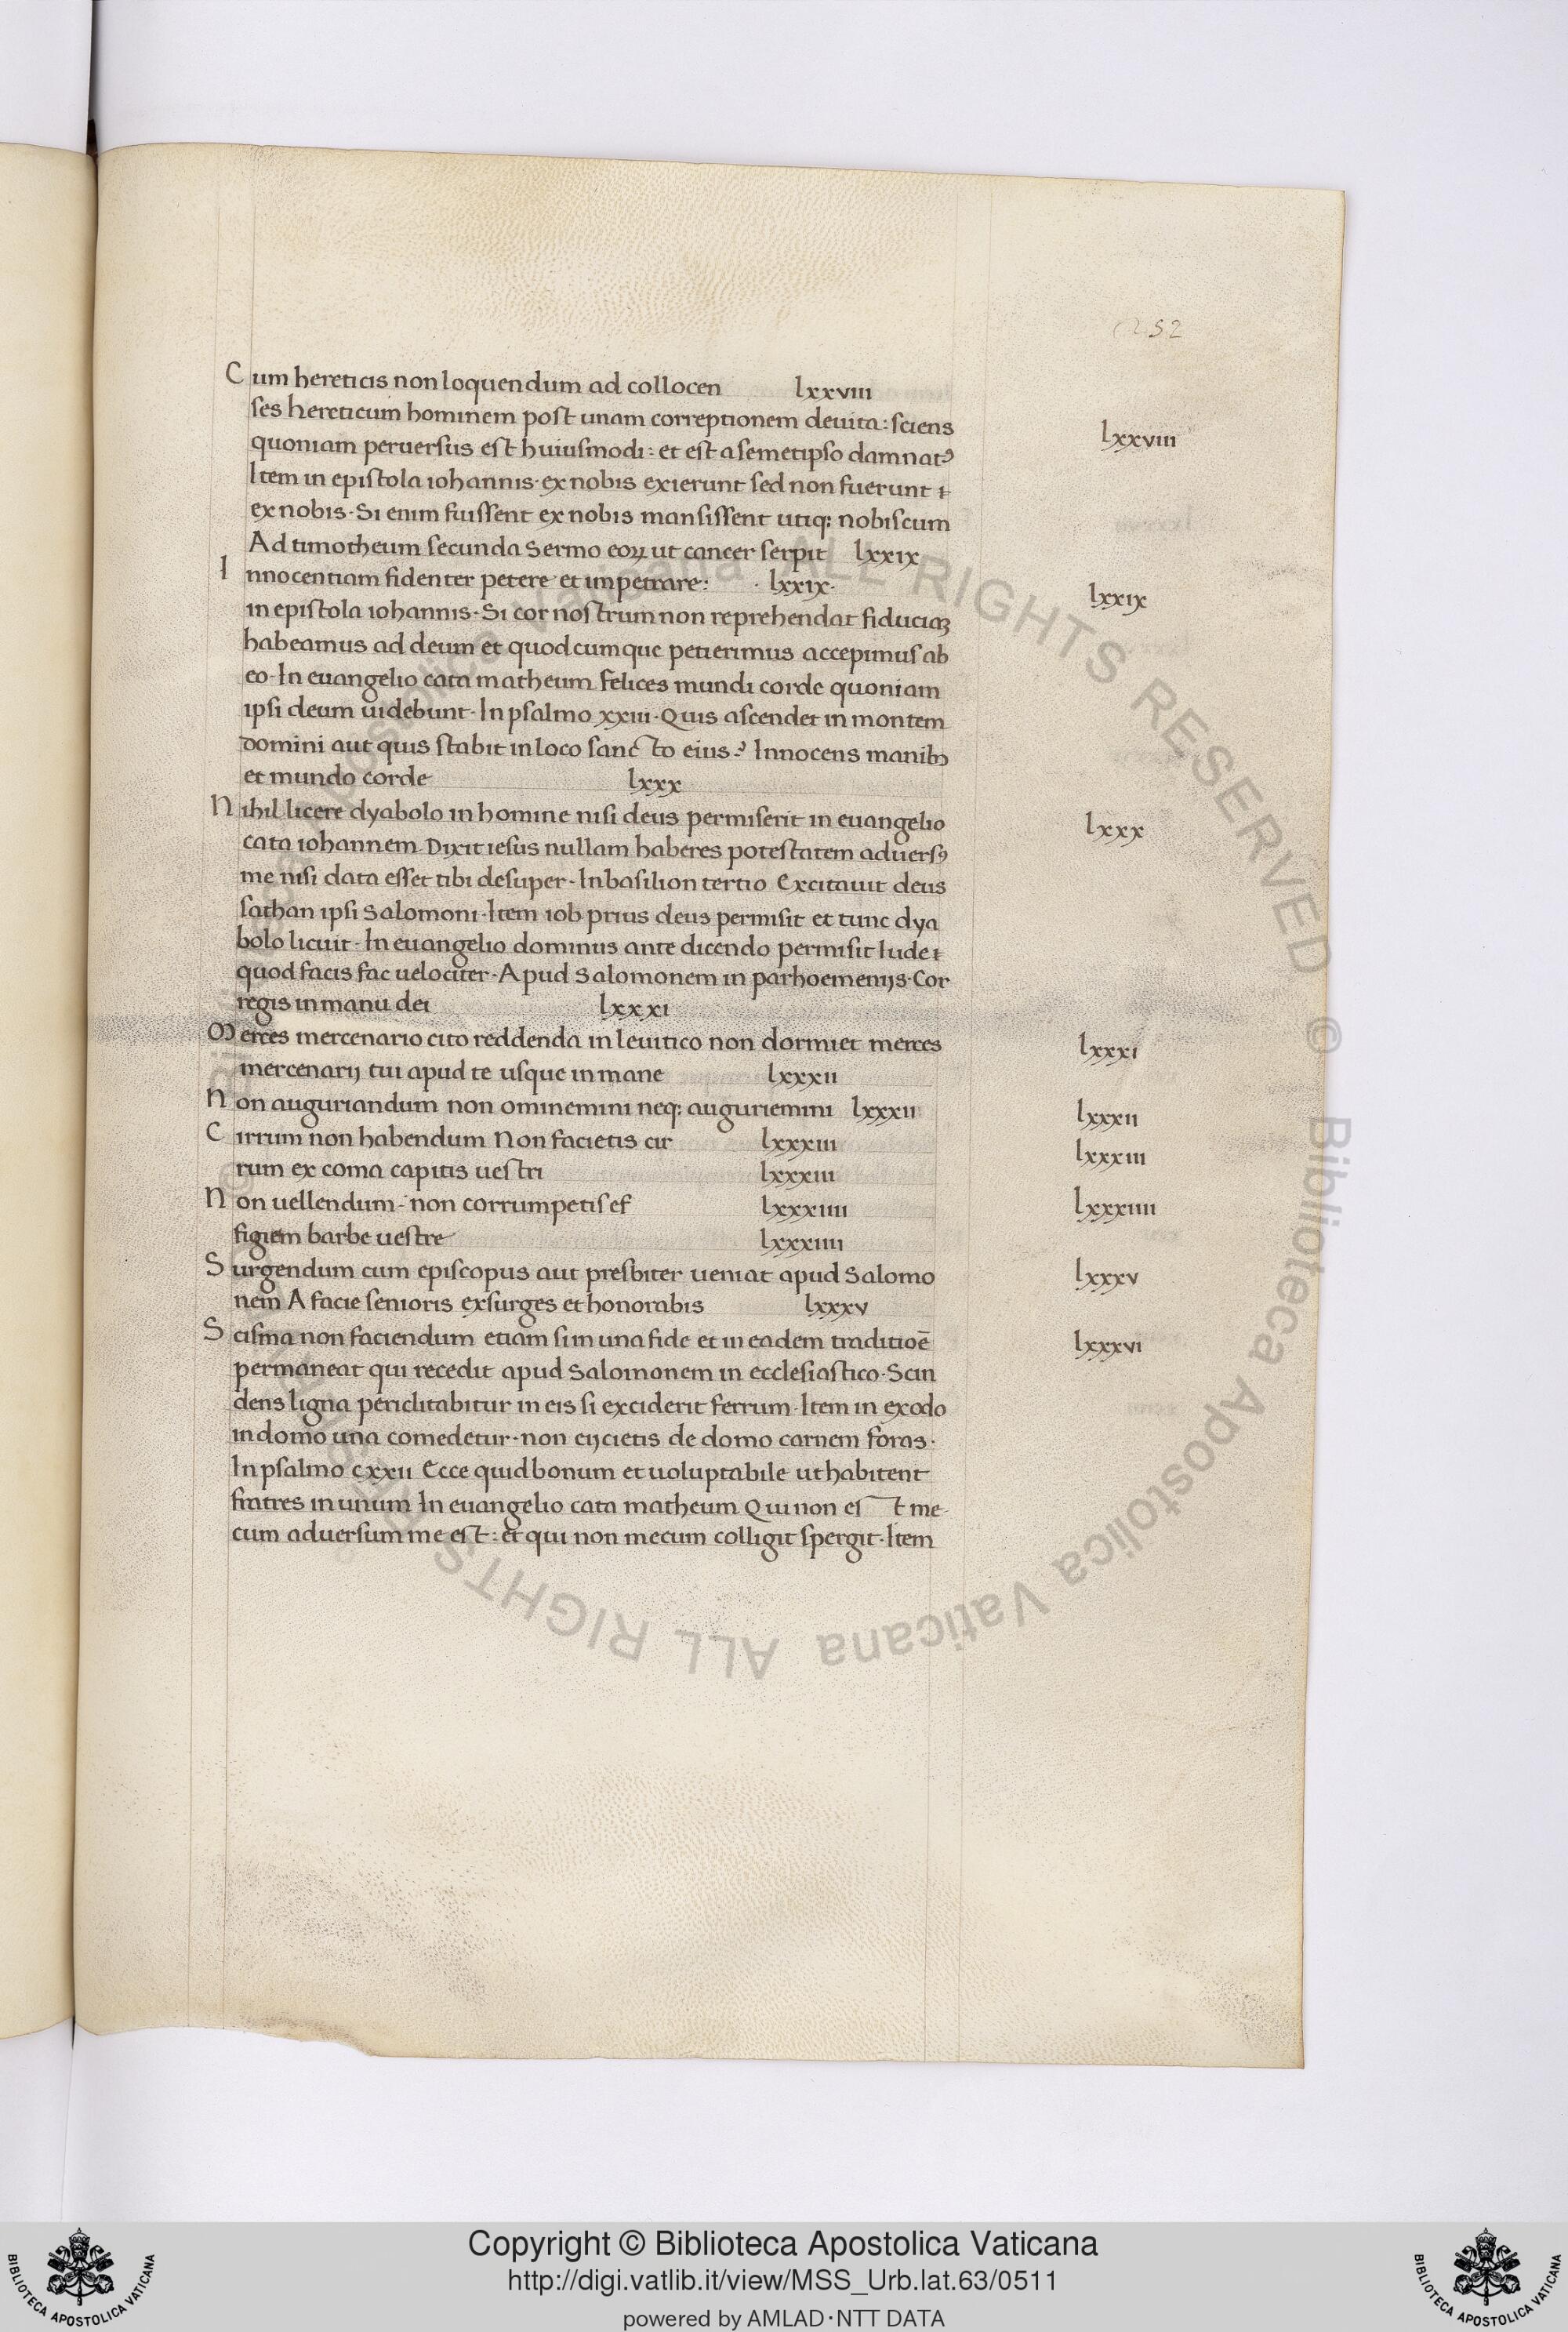 252
Cum hereticis non loquendum ad collocen lxxviii
ses hereticum hominem post unam correptionem deuita: sciens lxxviii
quoniam peruersus est huiusmodi: et est a semetipso damnatꝰ
Item in epistola iohannis· ex nobis exierunt sed non fuerunt
ex nobis· Si enim fuissent ex nobis mansissent utiqꝫ nobiscum
Ad timotheum secunda Sermo eoꝝ ut cancer serpit lxxix
Innocentiam fidenter petere et impetrare: · lxxix· lxxix
in epistola iohannis· Si cor nostrum non reprehendat fiduciaꝫ
habeamus ad deum et quodcumque petierimus accepimus ab
eo· In euangelio cata matheum felices mundi corde quoniam
ipsi deum uidebunt· In psalmo xxiii· Quis ascendet in montem
domini aut quis stabit in loco sancto eius? Innocens manibꝫ
et mundo corde lxxx
Nihil licere dyabolo in homine nisi deus permiserit in euangelio lxxx
cata iohannem Dixit iesus nullam haberes potestatem aduersꝰ
me nisi data esset tibi desuper· In basilion tertio Excitauit deus
sathan ipsi Salomoni· Item iob prius deus permisit et tunc dya
bolo licuit· In euangelio dominus ante dicendo permisit Iude
quod facis fac uelociter· Apud Salomonem in parhoemenijs· Cor
regis in manu dei lxxxi
Merces mercenario cito reddenda in leuitico non dormiet merces lxxxi
mercenarij tui apud te usque in mane lxxxii
Non auguriandum non ominemini neqꝫ auguriemini lxxxii lxxxii
Cirrum non habendum Non facietis cir lxxxiii lxxxiii
rum ex coma capitis uestri lxxxiii
Non uellendum· non corrumpetis ef lxxxiiii lxxxiiii
figiem barbe uestre lxxxiiii
Surgendum cum episcopus aut presbiter ueniat apud Salomo lxxxv
nem A facie senioris exsurges et honorabis lxxxv
Scisma non faciendum etiam si in una fide et in eadem traditioē lxxxvi
permaneat qui recedit apud Salomonem in ecclesiastico· Scin
dens ligna periclitabitur in eis si exciderit ferrum· Item in exodo
in domo una comedetur· non eijcietis de domo carnem foras·
In psalmo cxxii Ecce quid bonum et uoluptabile ut habitent
fratres in unum In euangelio cata matheum Qui non est me
cum aduersum me est: et qui non mecum colligit spergit· Item
ALL RIGHTS RESERVED © Biblioteca Apostolica Vaticana ALL RIGHTS
BIBLIOTECA APOSTOLICA VATICANA
Copyright © Biblioteca Apostolica Vaticana
http://digi.vatlib.it/view/MSS_Urb.lat.63/0511
powered by AMLAD·NTT DATA
BIBLIOTECA APOSTOLICA VATICANA